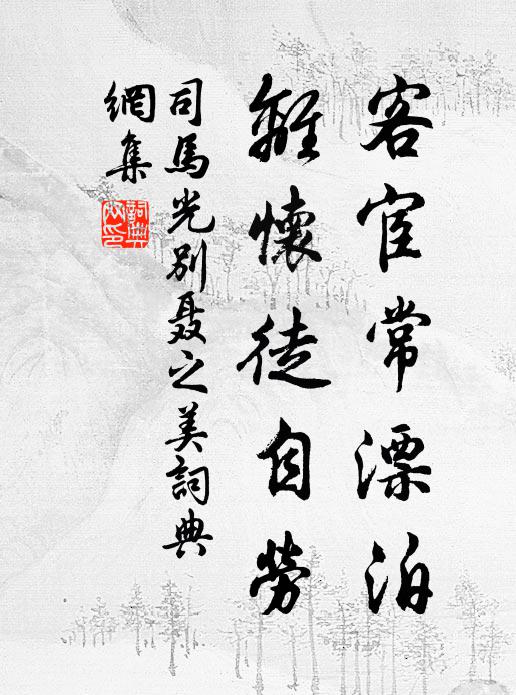 客宦常漂泊
離懷徒自勞
司馬光別聂之美詞典
網集
詞典網印